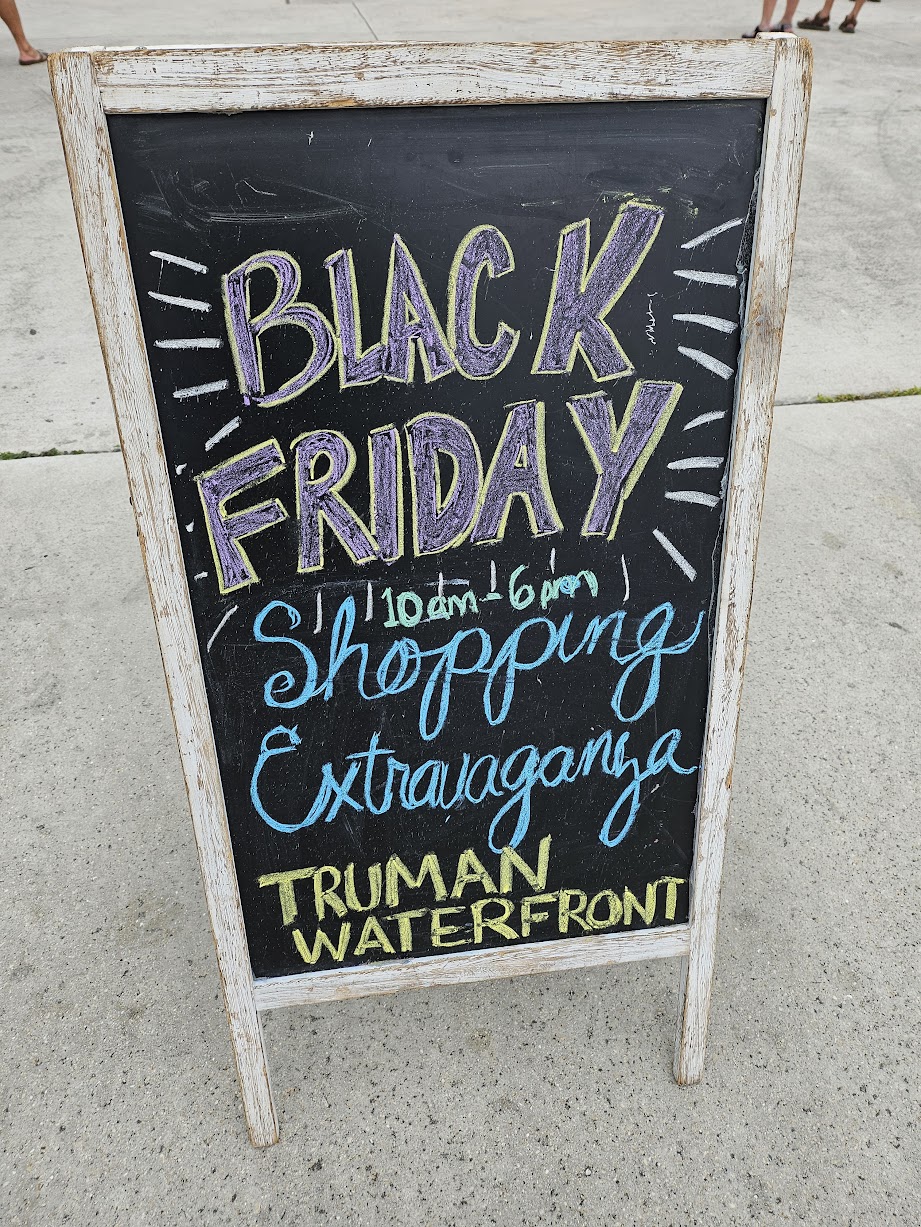 BLACK
FRIDAY
10am-6pm
Shopping
Extravaganza
TRUMAN
WATERFRONT